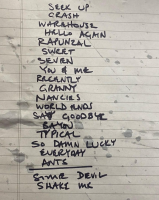 SEEK UP
CRASH
WAREHOUSE
HELLO AGAIN
RAPUNZEL
SWEET
SEVEN
YOU & ME
RECENTLY
GRANNY
NANCIES
WORLD ENDS
SAY GOODBYE
BAYOU
TYPICAL
SO DAMN LUCKY
EVERYDAY
ANTS
DEVIL
SHAKE ME